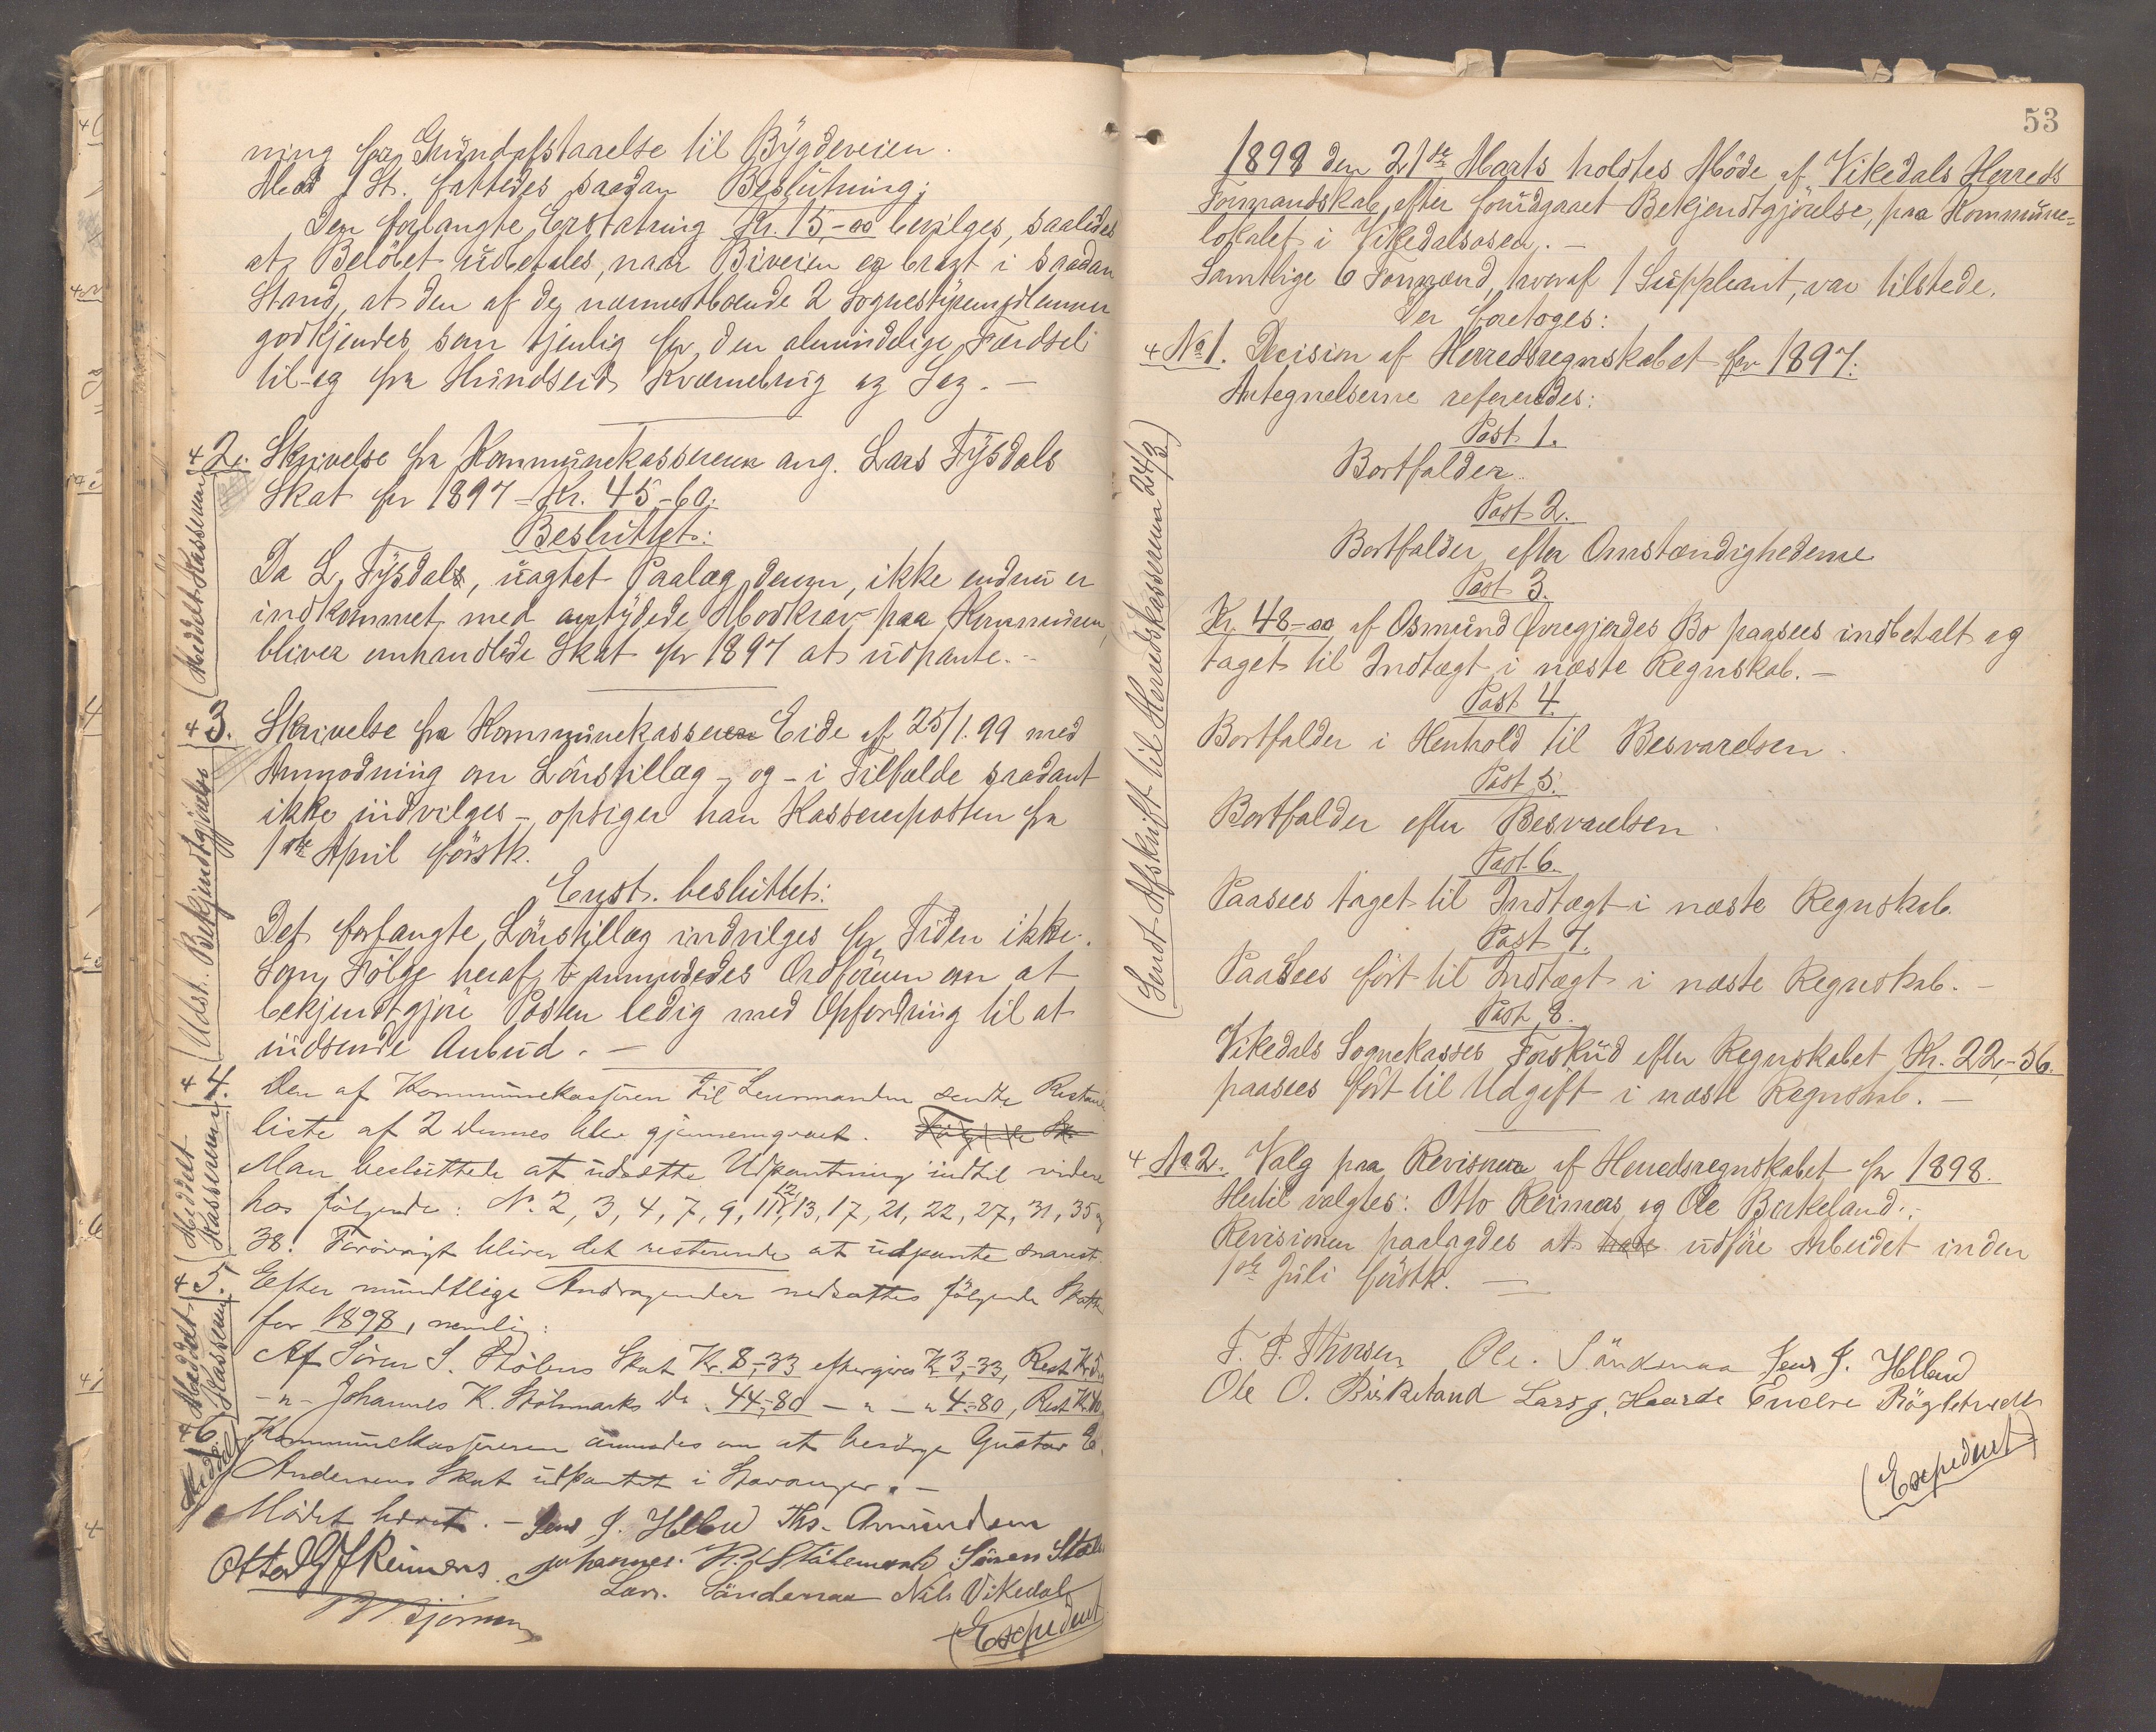 ning for Grundafstaaelse til Bygdeveien.
Mod 1 St. fattedes saadan Beslutning:
Den forlangte Erstatning Kr. 15,-00 bevilges, saaledes
at Beløbet udbetales, naar Biveien er bragt i saadan
Stand, at den af de nærmestboende 2 Sognestyremedlemmer
godkjendes som tjenlig for den almindelige Færdsel
til og fra Hundseid Kværnebrug og Sag. -
+ 2. Skrivelse fra Kommunekassereren ang. Lars Tysdals
Skat for 1897 - Kr. 45-60.
Besluttet:
Da L. Tysdal, uagtet Paalæg derom, ikke endnu er
indkommet med antydede Modkrav paa Kommunen,
bliver omhandlede Skat for 1897 at udpante. -
(Meddelt Kassereren)
+ 3. Skrivelse fra Kommunekasserer Eide af 25/1. 99 med
Anmodning om Lönstillæg - og - i Tilfælde saadant
ikke indvilges - opsiger han Kassererposten fra
1ste April förstk.
Enst. besluttet:
Det forlangte Lönstillæg indvilges for Tiden ikke.
Som Fölge heraf anmodedes Ordföreren om at
bekjendtgjöre Posten ledig med Opfordring til at
indsende Anbud. -
(Udst. Bekjendtgjörelse)
+ 4. Den af Kommunekassereren til Lensmanden sendte Restance
liste af 2 dennes blev gjennemgaaet.
Man besluttede at udsætte Udpantning indtil videre
hos følgende: No 2, 3, 4, 7, 9, 11, 12, 13, 17, 21, 22, 27, 31, 35 og
38. Forövrigt bliver det resterende at udpante snarest.
(Meddelt Kassereren)
+ 5. Efter mundtlige Andragender nedsattes følgende Skatter
for 1898, nemlig:
Af Sören S. Stölens Skat Kr. 8,-33 eftergives K 3,-33, Rest K. 5.
- " - Johannes K. Stölsmarks Do " 44-80 - " - " 4-80, Rest Kr. 40
(Meddelt Kassereren)
+ 6. Kommunekassereren anmodes om at besörge Gustav E.
Andersens Skat udpantet i Stavanger. -
(Meddelt)
Mödet hævet. - Jens J. Helland Ths. Amundsen
Otto Reimers. Johannes K. Stölsmark Sören Stölen
Lars. Söndenaa Nils Vikedal
(Expederet)
53
1899 den 21de Marts holdtes Möde af Vikedals Herreds
Formandskab, efter foudgaaet Bekjendtgjörelse, paa Kommune-
lokalet i Vikedalsosen. -
Samtlige 6 Formænd, hvoraf 1 Suppleant, var tilstede.
Der foretoges:
+ No 1. Decision af Herredsregnskabet for 1897.
Antegnelserne refereredes:
Post 1.
Bortfalder.
Post 2.
Bortfalder efter Omstændighederne
Post 3.
Kr. 48-00 af Osmund Övregjerdes Bo paasees indbetalt og
taget til Indtægt i næste Regnskab. -
Post 4.
Bortfalder i Henhold til Besvarelsen.
Post 5.
Bortfalder efter Besvarelsen.
Post 6.
Paasees taget til Indtægt i næste Regnskab.
Post 7.
Paasees fört til Indtægt i næste Regnskab. -
Post 8.
Vikedals Sognekasses Forskud efter Regnskabet Kr. 22,-56.
paasees fört til Udgift i næste Regnskab. -
(Sendt Afskrift til Herredskassereren 24/3)
+ No 2. Valg paa Revisorer af Herredsregnskabet for 1898.
Hertil valgtes: Otto Reimers og Ole Birkeland.
Revisionen paalagdes at udföre Arbeidet inden
1ste Juli förstk. -
T. P. Thorsen Ole. Söndenaa Jens J. Helland
Ole O. Birkeland Lars J. Haarde Endre
(Expederet)